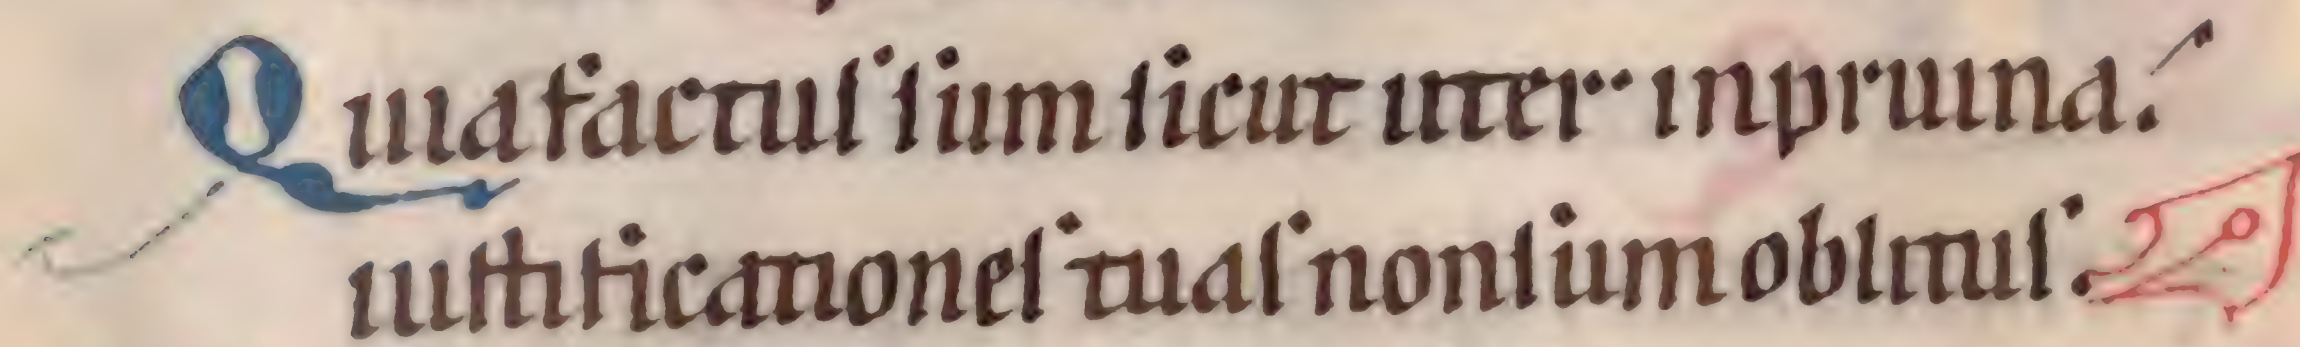 Quia factus sum sicut uter in pruina.
iustificationes tuas non sum oblitus.